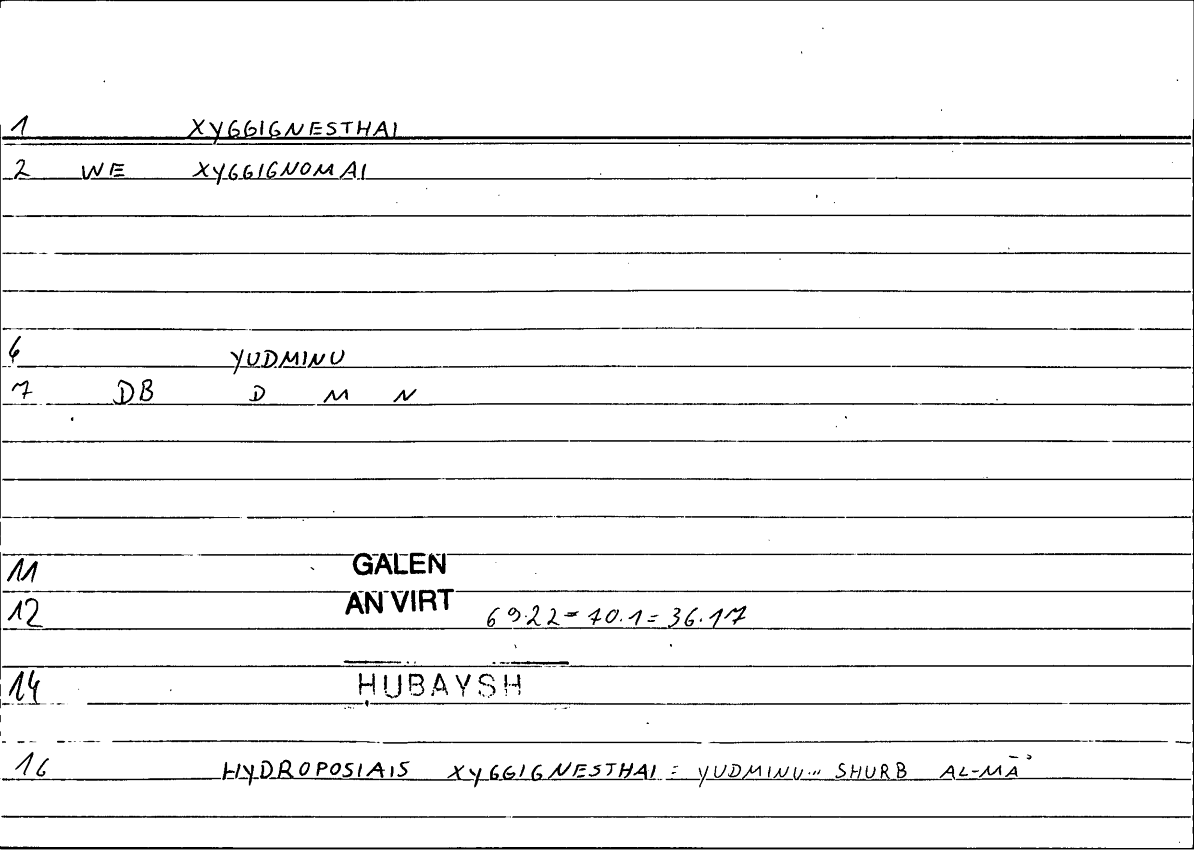 1 XYGGIGNESTHAI
2 WE XYGGIGNOMAI
6 YUDMINU
7 DB D M N
11 GALEN
12 AN VIRT 69.22 = 70.1 = 36.17
14 ḤUBAYSH
16 HYDROPOSIAIS XYGGIGNESTHAI = YUDMINU... SHURB AL-MĀʾ